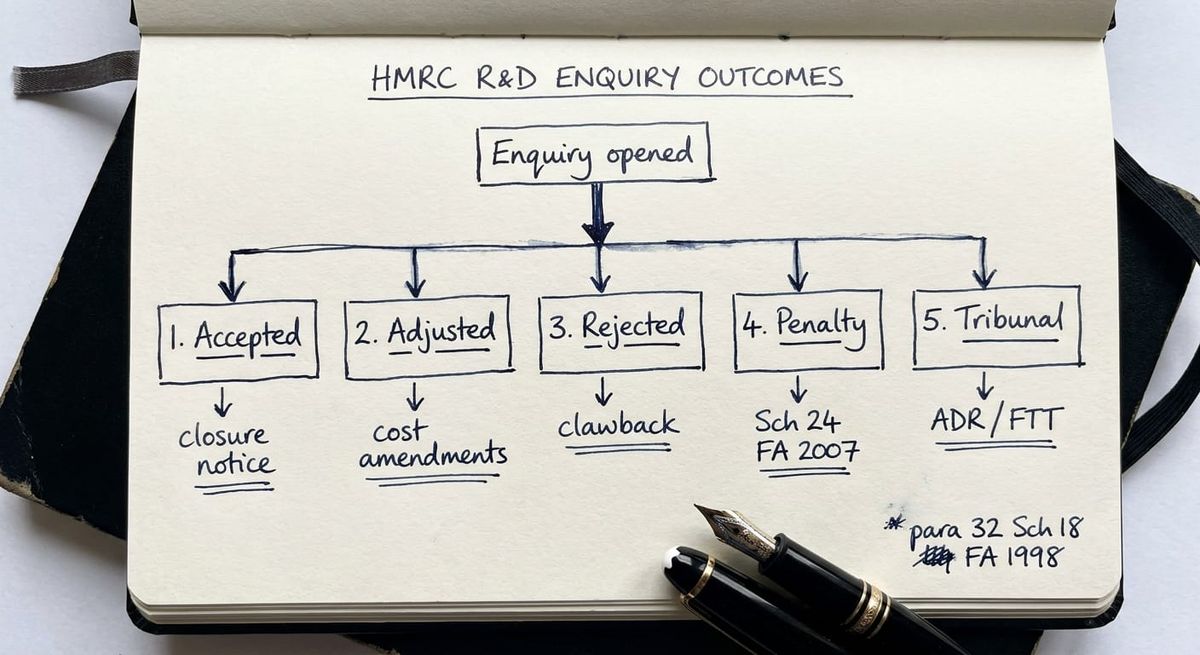 HMRC R&D ENQUIRY OUTCOMES
Enquiry opened
1. Accepted
2. Adjusted
3. Rejected
4. Penalty
5. Tribunal
closure
notice
cost
amendments
clawback
Sch 24
FA 2007
ADR/FTT
* para 32 Sch 18
FA 1998